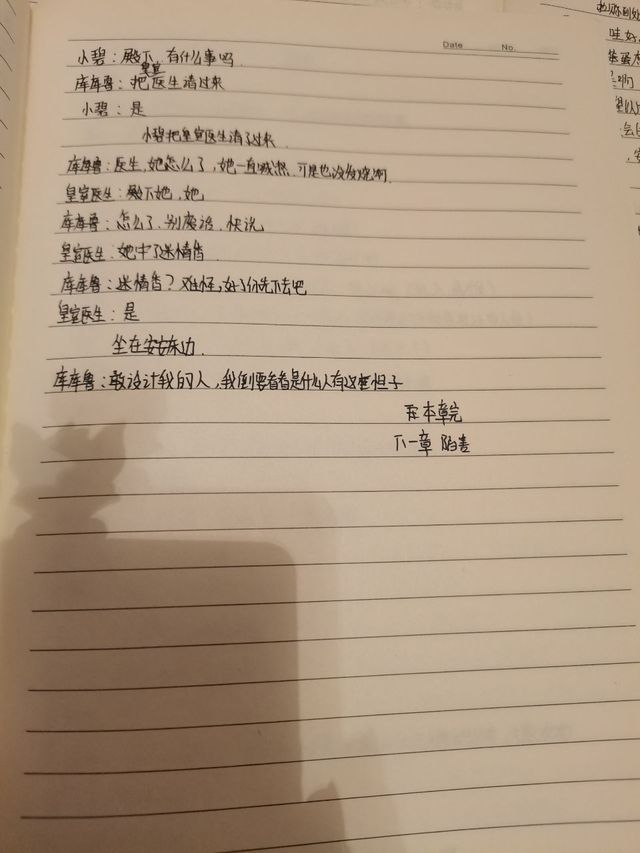 Date No.
小碧：殿下，有什么事吗
库库鲁：把皇室医生请过来
小碧：是
小碧把皇室医生请了过来
库库鲁：医生，她怎么了，她一直喊热，可是也没发烧啊
皇室医生：殿下她，她
库库鲁：怎么了，别废话，快说
皇室医生：她中了迷情香
库库鲁：迷情香？难怪，好了你先下去吧
皇室医生：是
坐在安安床边
库库鲁：敢设计我的人，我倒要看看是什么人有这个胆子
本章完
下一章 陷害